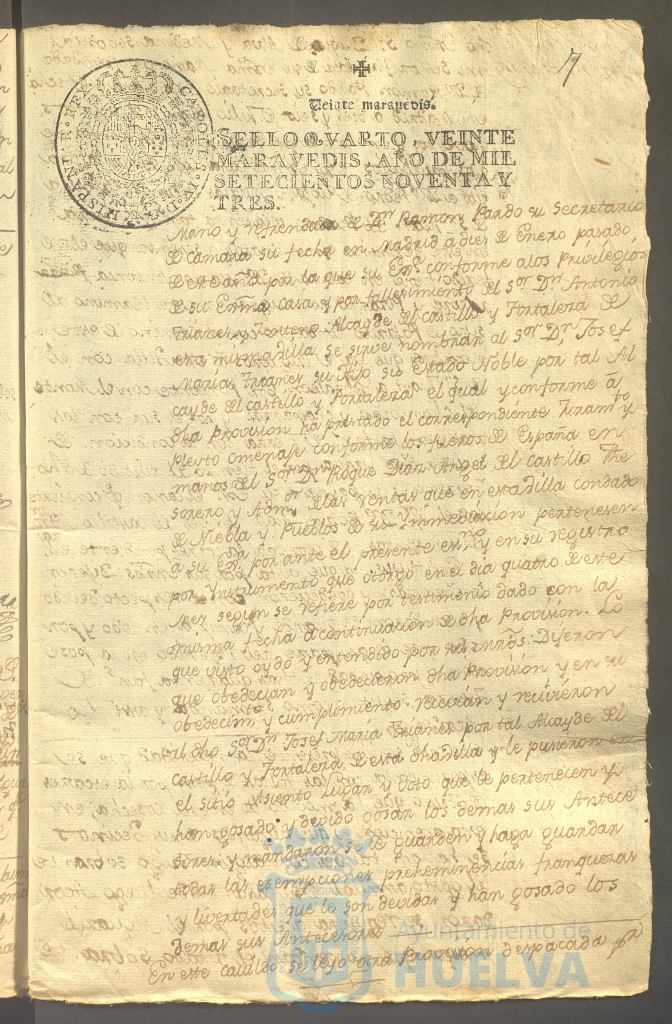 7
Veinte maravedis.
SELLO QVARTO, VEINTE
MARAVEDIS, AÑO DE MIL
SETECIENTOS NOVENTA Y
TRES.
CAROLUS IV D.G. HISPANIAR. REX
Mano y refrendada de Dn. Ramon Pardo su Secretario
de camara su fecha en Madrid a dies de Enero pasado
de este año por la que su Exa. conforme a los Privilegios
de su Exma. casa y por fallecimiento del Sor. Dn. Antonio
Trianes y Alcayde del castillo y Fortaleza de
esta misma villa se sirve nombrar al Sor. Dn. Josef
Maria Trianes su Hijo su Estado Noble por tal Al
cayde del castillo y Fortaleza el qual y conforme á
dha Provision ha prestado el correspondiente Juramto. y
pleyto omenaje conforme los fueros de España en
manos del Sor. Dn. Roque Dion Angel del castillo The
sorero y Admor. de las rentas que en esta villa condado
de Niebla y Pueblos de su immediacion pertenesen
a su Exa. por ante el presente esno. y en su registro
por Instrumento que otorgo en el dia quatro de este
mez segun se refiere por testimonio dado con la
misma fecha a continuacion de dha Provision. Lo
que visto oydo y entendido por sus mrds. Dijeron
que obedecian y obedecieron dha Provision y en su
obedecimto. y cumplimiento recivian y recivieron
al dho Sor. Dn. Josef Maria Trianes por tal Alcayde del
castillo y Fortaleza de esta dha villa y le pusieron en
el sitio Asiento Lugar y voto que le pertenecen y
han gosado y devido gosar los demas sus Antece
sores y mandaron se le guarden y haga guardar
todas las esempciones preheminencias franquezas
y livertades que le son devidas y han gosado los
demas sus Antecesores
En este cavildo se leyo otra Provision despacada pr.
Ayuntamiento de
HUELVA